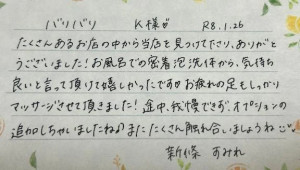 バリバリ K様♡ R8.1.26
たくさんあるお店の中から当店を見つけて下さり、ありがと
うございました!お風呂での密着泡洗体から、気持ち
良いと言って頂けて嬉しかったですお疲れの足もしっかり
マッサージさせて頂きました!途中、我慢できず、オプションの
追加しちゃいましたね♪またたくさん触れ合いましょうね♡
新條 すみれ